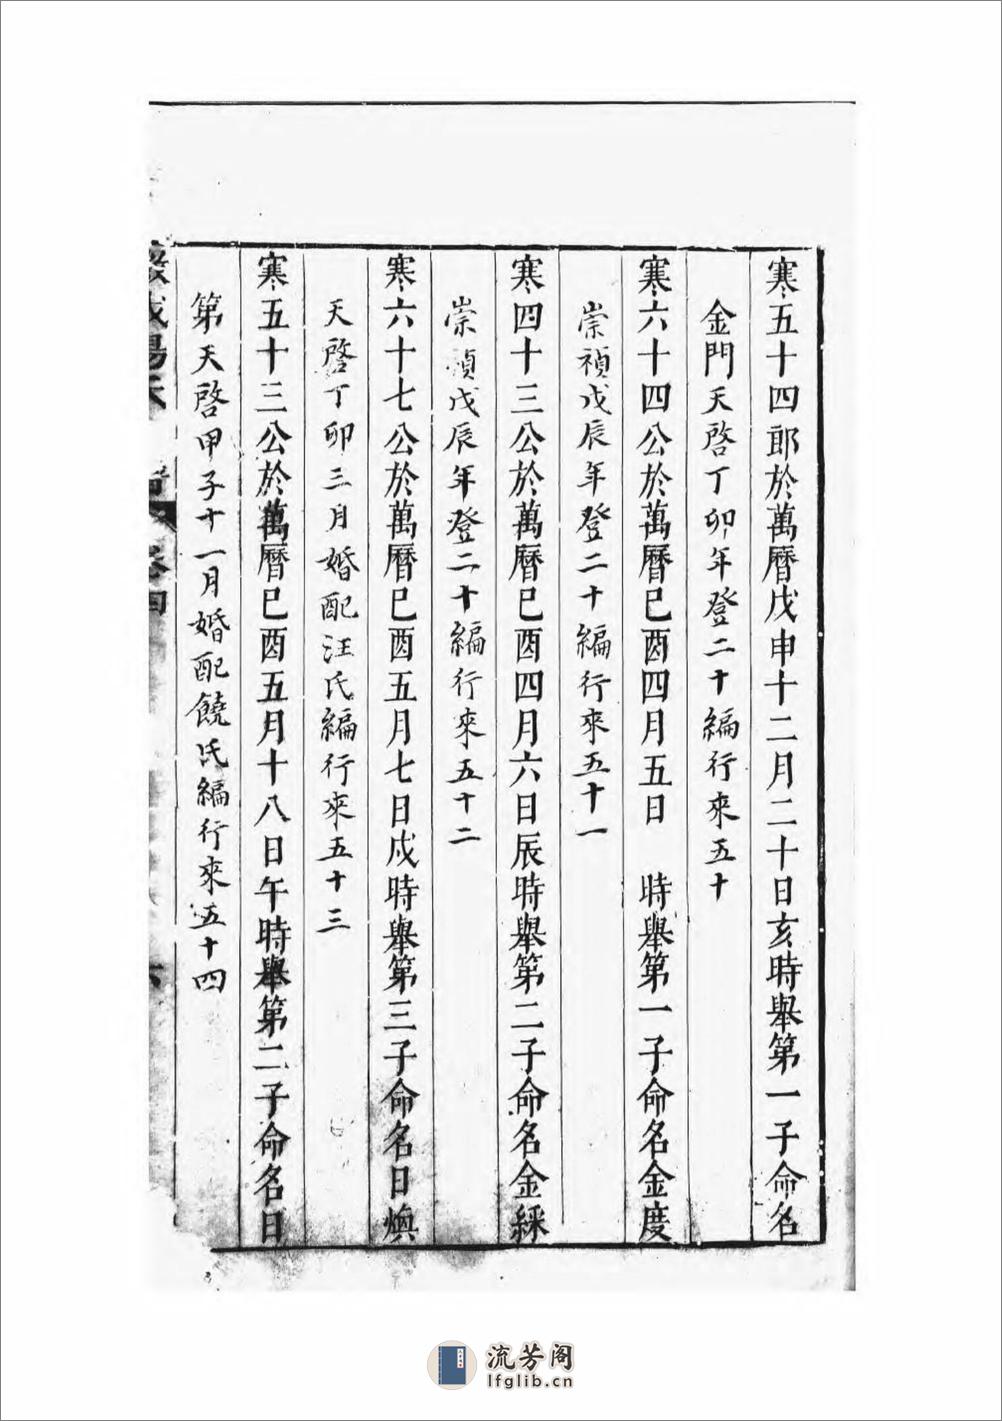 寒五十四郎於萬曆戊申十二月二十日亥時舉第一子命名
金門天啓丁卯年登二十編行來五十
寒六十四公於萬曆巳酉四月五日　時舉第一子命名金度
崇禎戊辰年登二十編行來五十一
寒四十三公於萬曆巳酉四月六日辰時舉第二子命名金綵
崇禎戊辰年登二十編行來五十二
寒六十七公於萬曆巳酉五月七日戌時舉第三子命名日煥
天啓丁卯三月婚配汪氏編行來五十三
寒五十三公於萬曆巳酉五月十八日午時舉第二子命名日
第天啓甲子十一月婚配饒氏編行來五十四
卷四
流芳阁
lfglib.cn